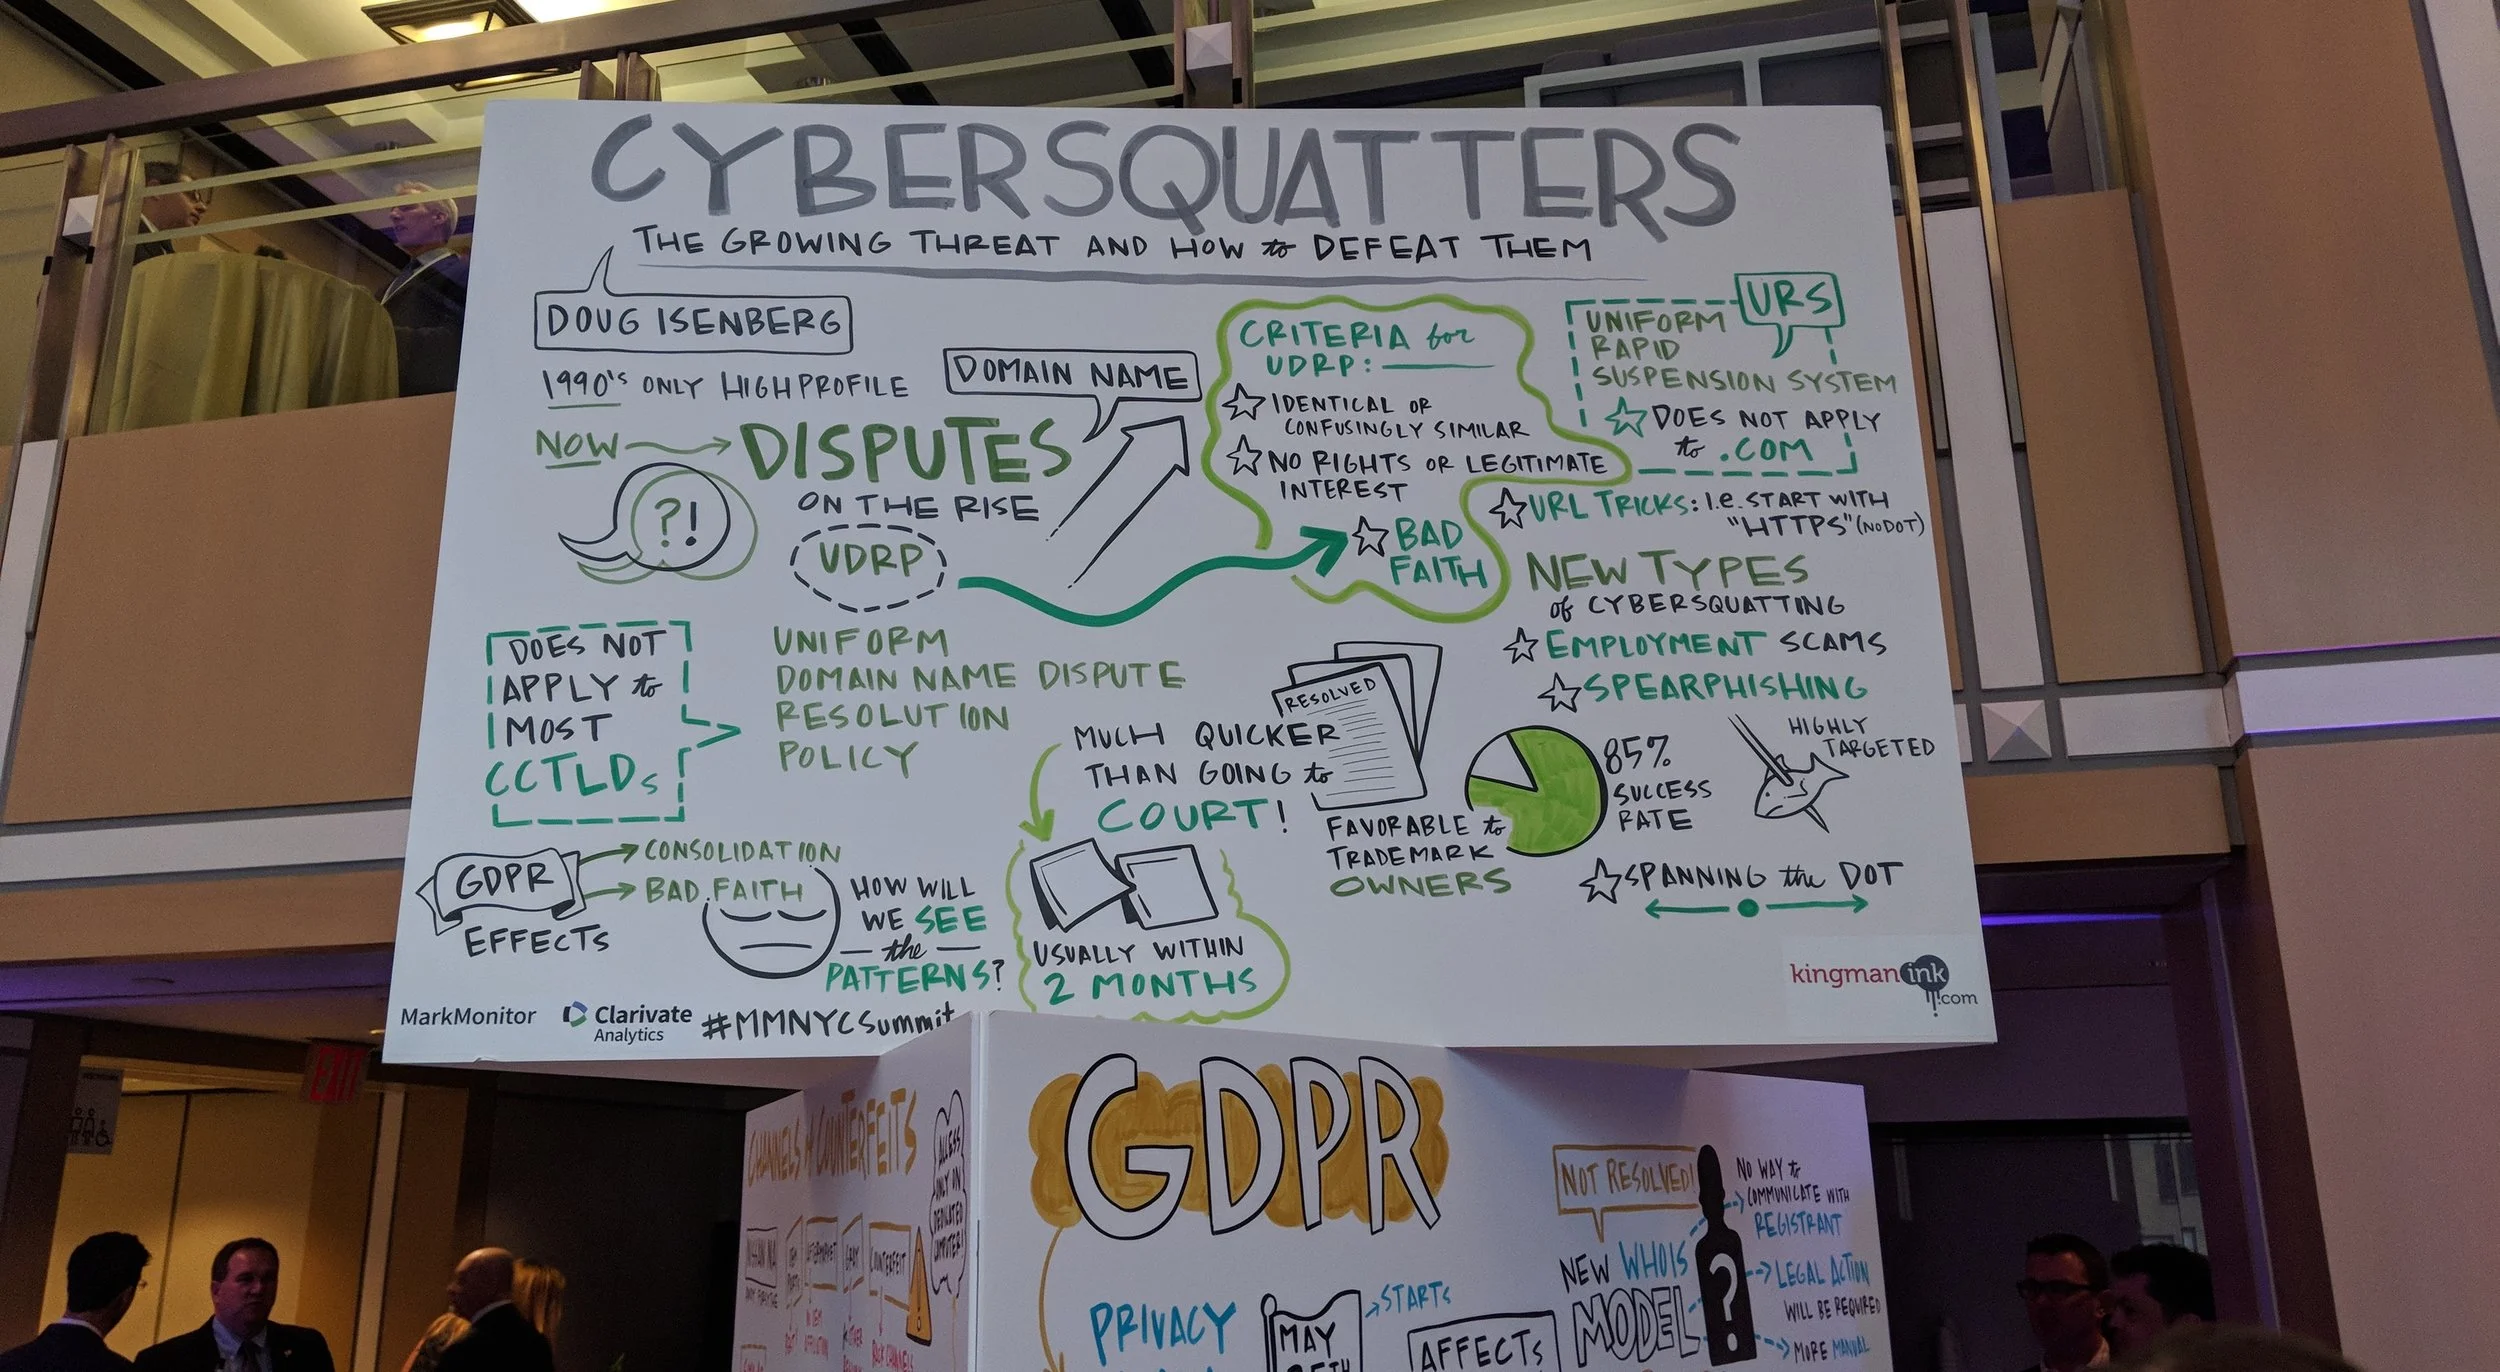 CYBERSQUATTERS
THE GROWING THREAT AND HOW to DEFEAT THEM
DOUG ISENBERG
1990's ONLY HIGH PROFILE
NOW
DISPUTES
ON THE RISE
DOMAIN NAME
?!
UDRP
UNIFORM
DOMAIN NAME DISPUTE
RESOLUTION
POLICY
DOES NOT
APPLY to
MOST
CCTLDs
CRITERIA for
UDRP:
IDENTICAL OR
CONFUSINGLY SIMILAR
NO RIGHTS OR LEGITIMATE
INTEREST
BAD
FAITH
URS
UNIFORM
RAPID
SUSPENSION SYSTEM
DOES NOT APPLY
to .COM
URL TRICKS: I.e. START WITH
"HTTPS" (NO DOT)
NEW TYPES
of CYBERSQUATTING
EMPLOYMENT SCAMS
SPEARPHISHING
HIGHLY
TARGETED
SPANNING the DOT
MUCH QUICKER
THAN GOING to
COURT!
RESOLVED
FAVORABLE to
TRADEMARK
OWNERS
85%
SUCCESS
RATE
USUALLY WITHIN
2 MONTHS
GDPR
EFFECTS
CONSOLIDATION
BAD FAITH
HOW WILL
WE SEE
the
PATTERNS?
MarkMonitor
Clarivate
Analytics
#MMNYCSummit
kingman ink
.com
EXIT
CHANNELS COUNTERFEITS
ACCESS
ONLY ON
DEDICATED
COMPUTER!
GRAY
COUNTERFEIT
GDPR
PRIVACY
MAY
STARTS
AFFECTS
NOT RESOLVED!
NEW WHOIS
MODEL
?
NO WAY to
COMMUNICATE WITH
REGISTRANT
LEGAL ACTION
WILL BE REQUIRED
MORE MANUAL